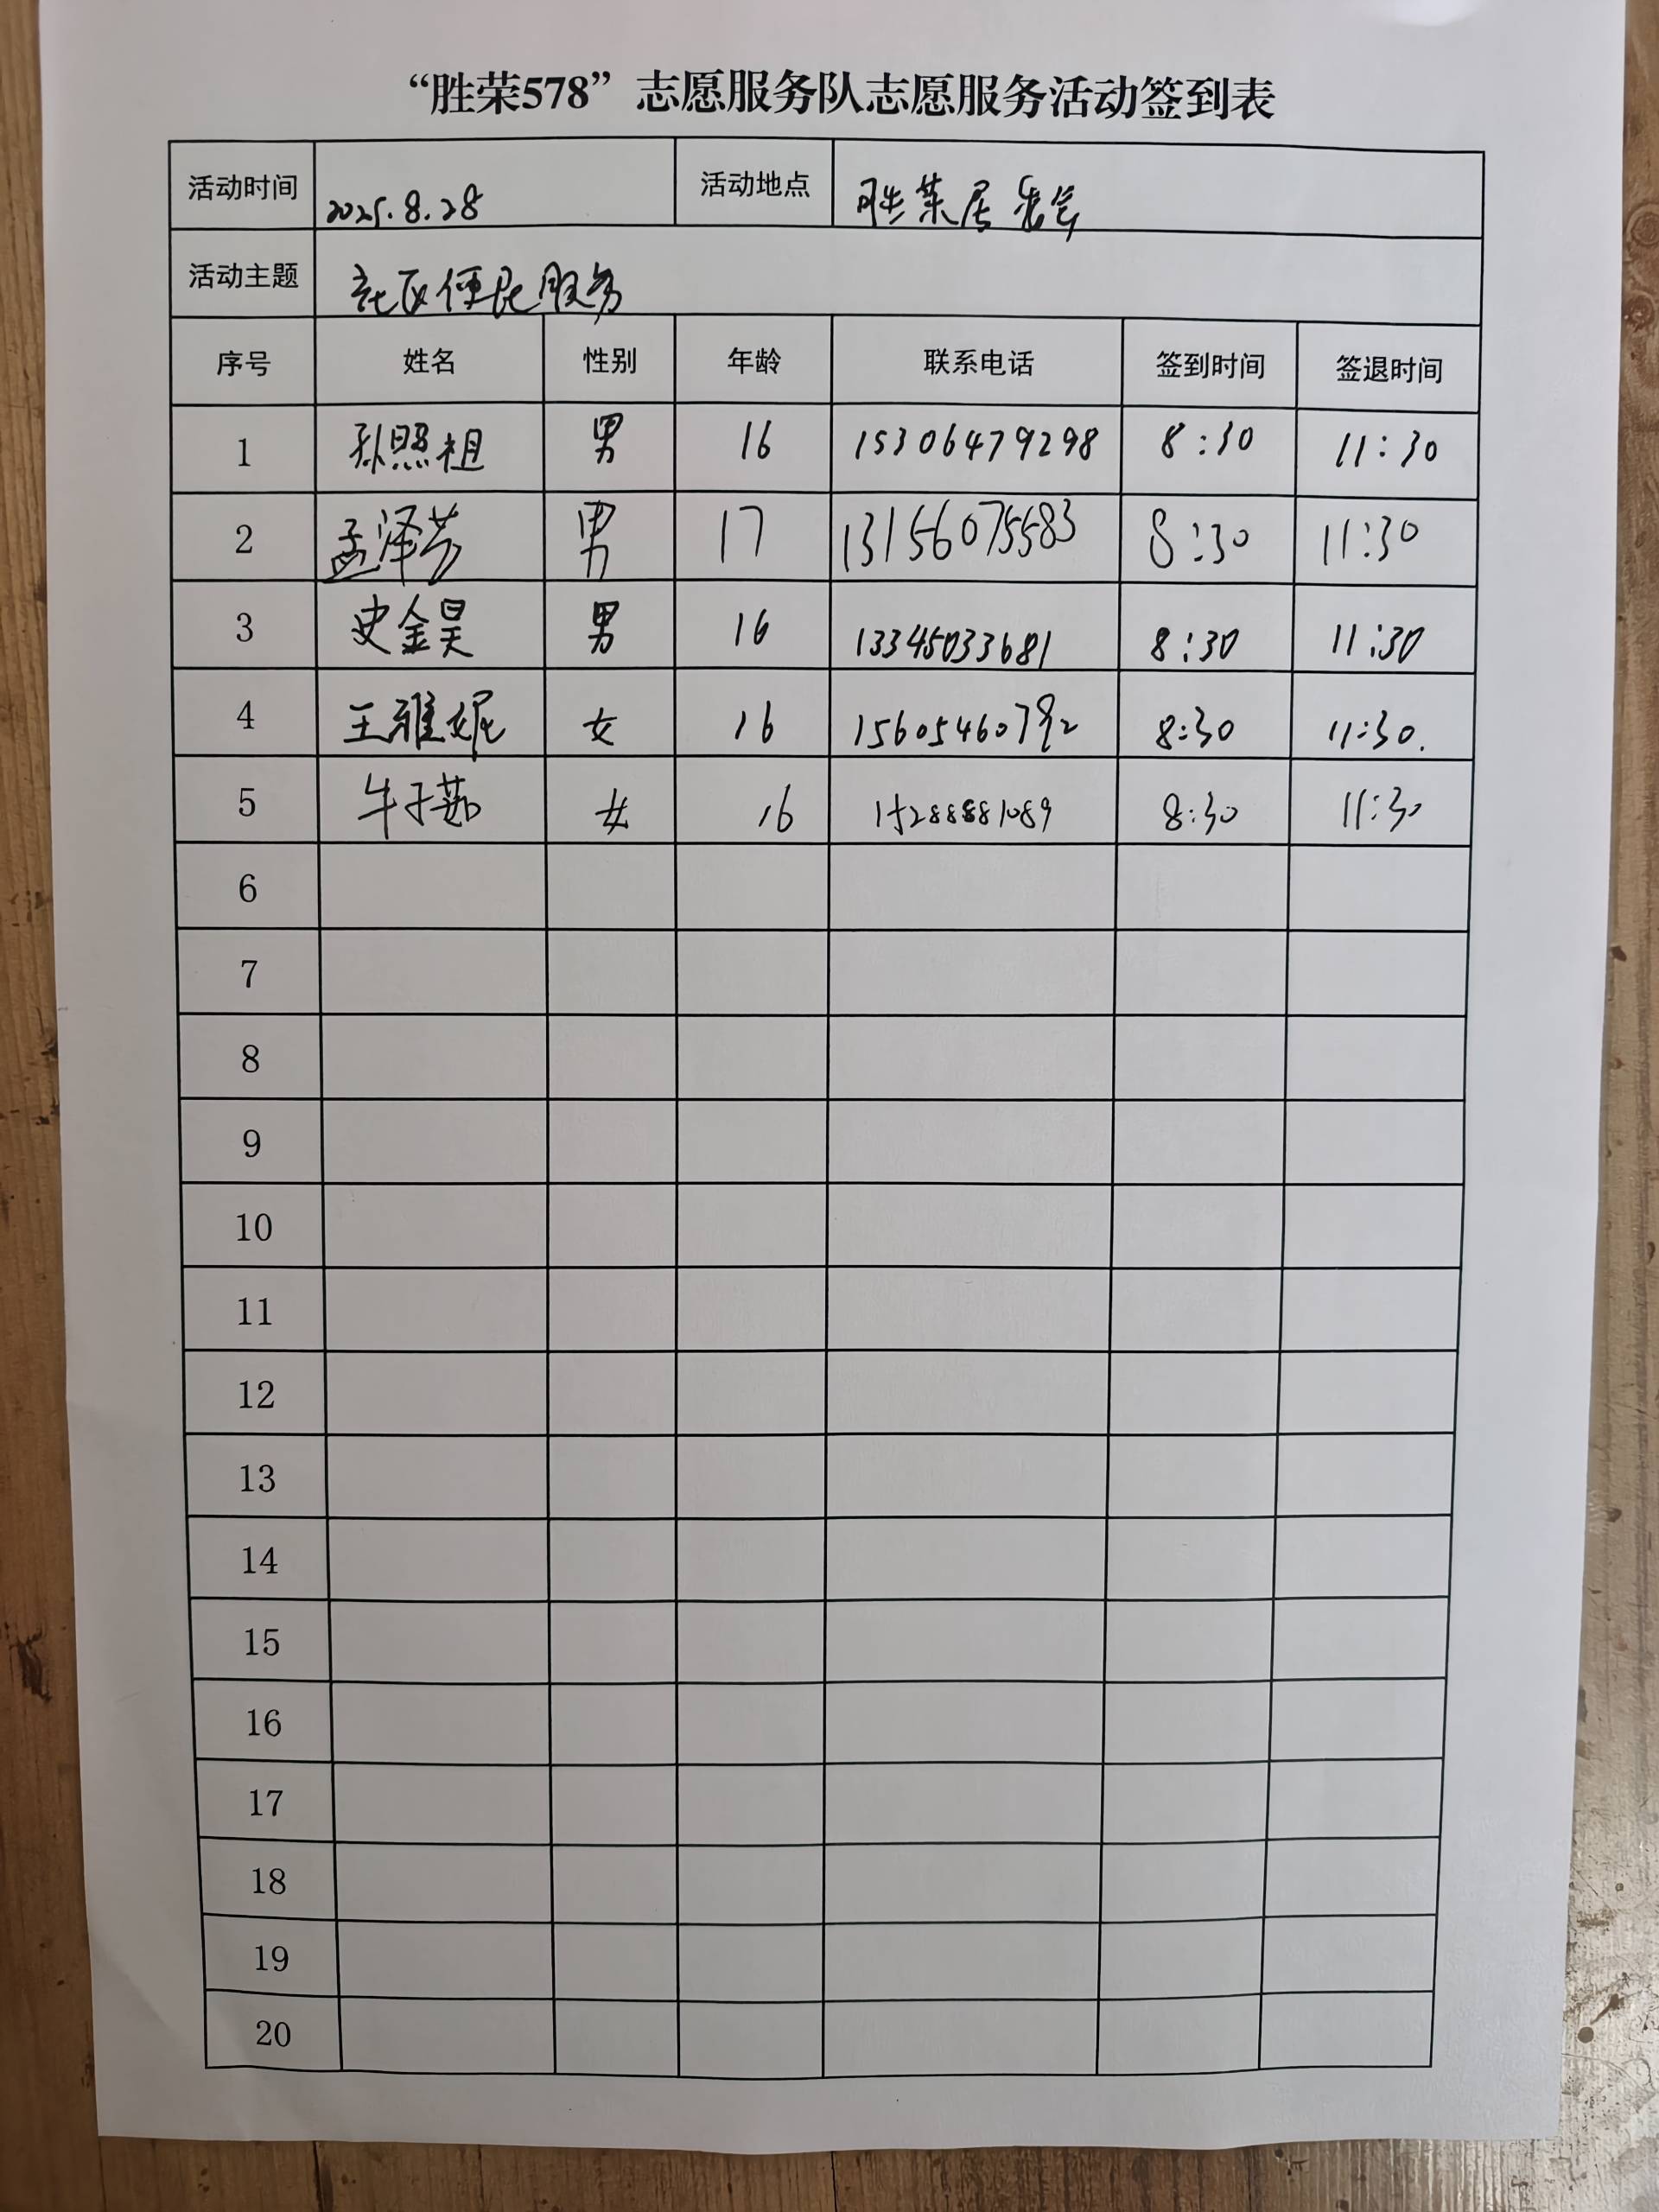 “胜荣578”志愿服务队志愿服务活动签到表
活动时间 2025.8.28 活动地点 胜荣居委会
活动主题 社区便民服务
序号 姓名 性别 年龄 联系电话 签到时间 签退时间
1 孙照祖 男 16 15306479298 8:30 11:30
2 孟泽芳 男 17 13156075583 8:30 11:30
3 史金昊 男 16 13345033681 8:30 11:30
4 王雅妮 女 16 8:30 11:30.
5 牛子茹 女 16 15288881089 8:30 11:30
6
7
8
9
10
11
12
13
14
15
16
17
18
19
20